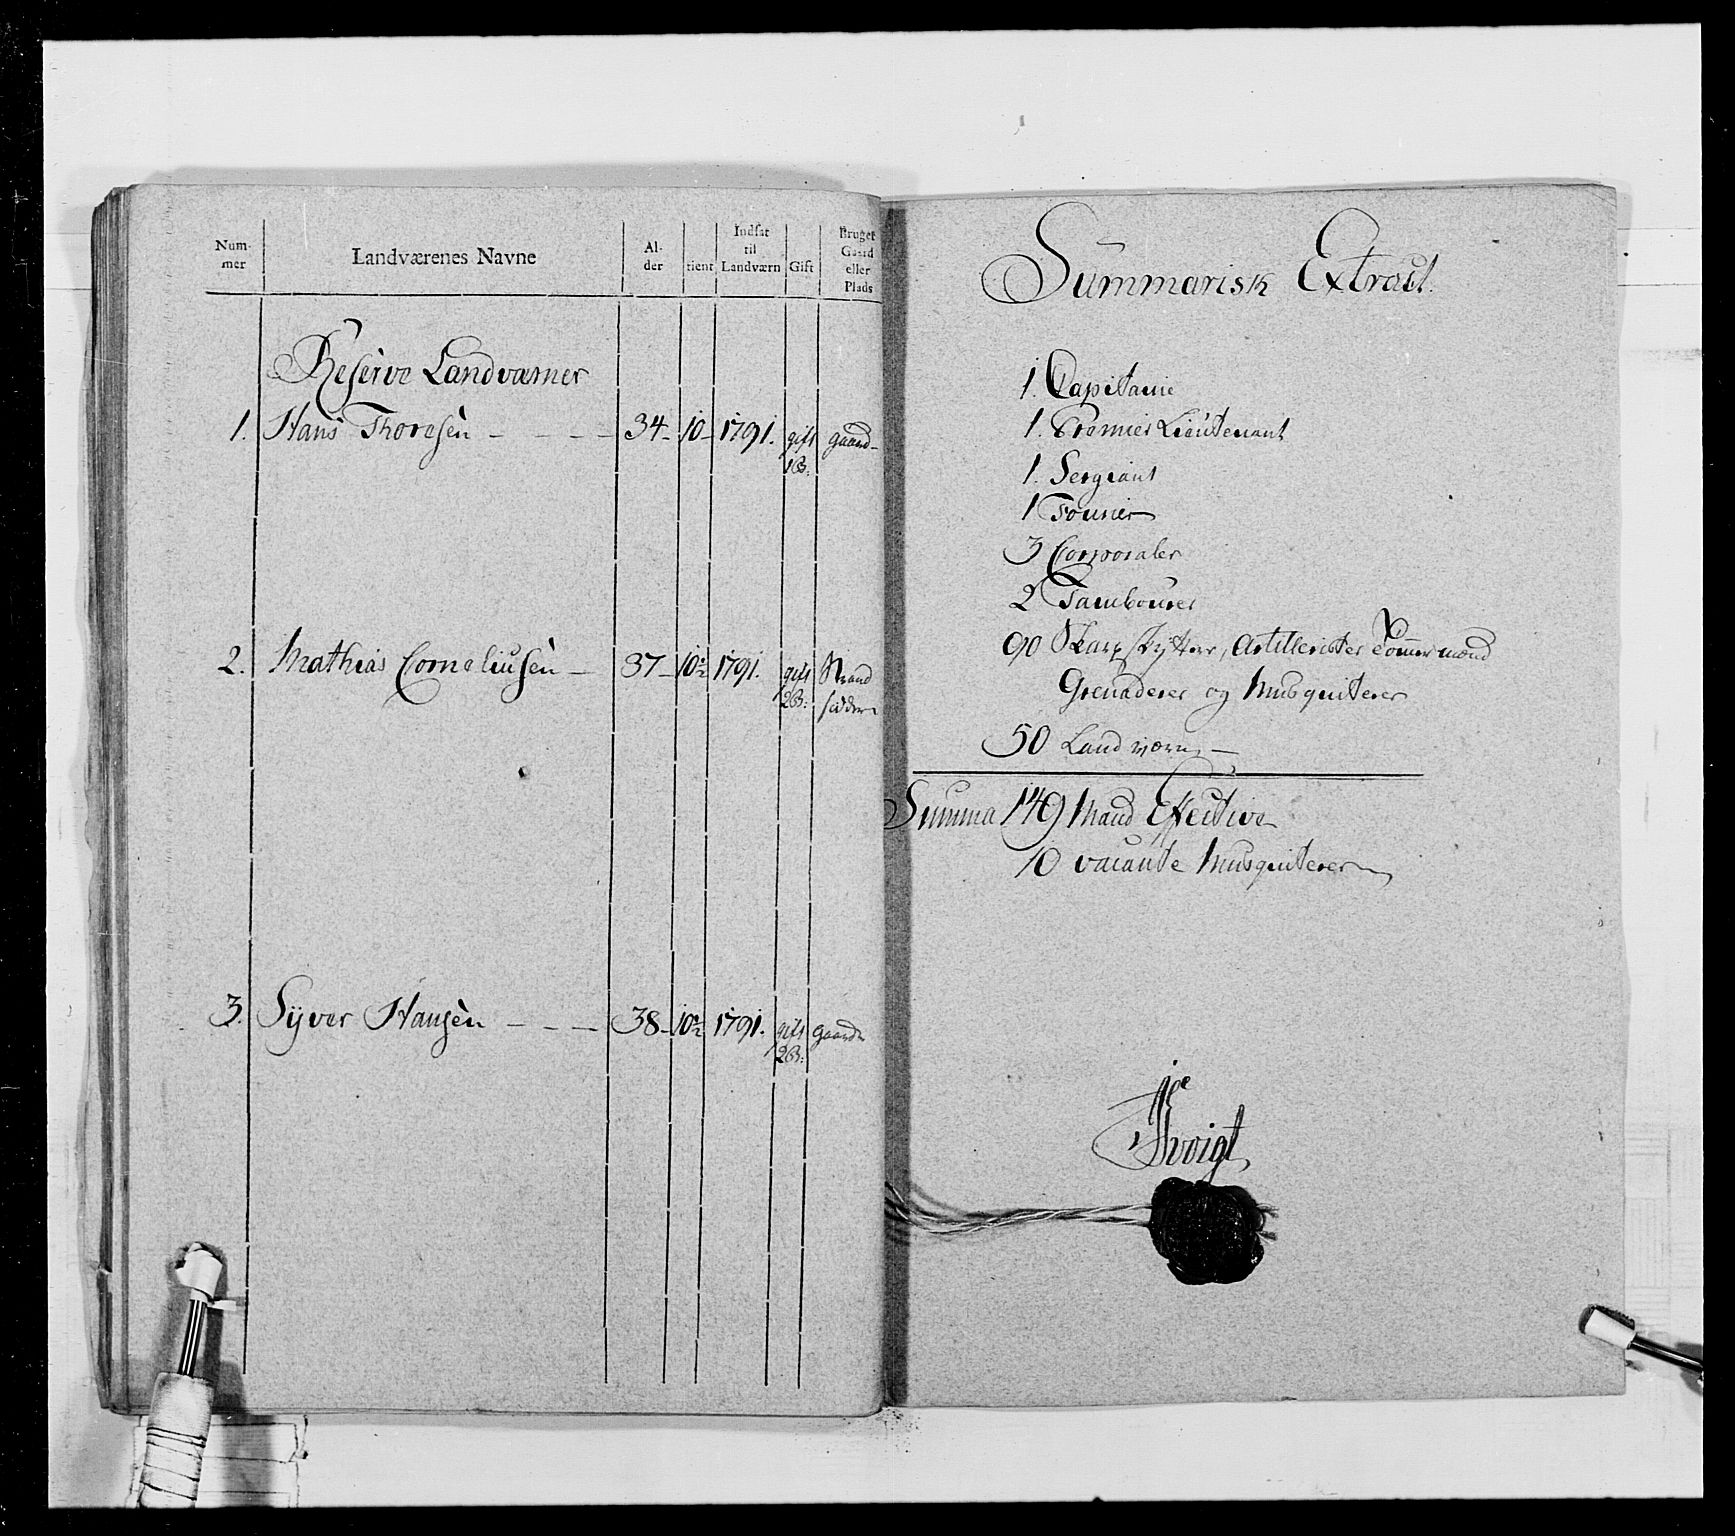 Num-
mer
Landværenes Navne
Al-
der
tient
Indsat
til
Landværn
Gift
Bruger
Gaard
eller
Plads
Reserve Landværner
1. Hans Thoresen - - - - 34- 10- 1791. gift gaard-
1 B:
2. Mathias Corneliusen - 37- 10½ 1791. gift Strand
2 B: sidder
3. Syver Hansen - - - 38- 10½ 1791. gift gaard
2 B:
Summarisk Extract.
1. Capitaine
1. Premier Lieutenant
1. Sergiant
1 Fourier
3 Corporaler
2 Tambourer
90 Skarpskytter, Artillerister Tømmermænd
Grenaderer og Musquiterer
50 Landværn -
Summa 149 Mand Effective
10 vacante Musquiterer
Voigt